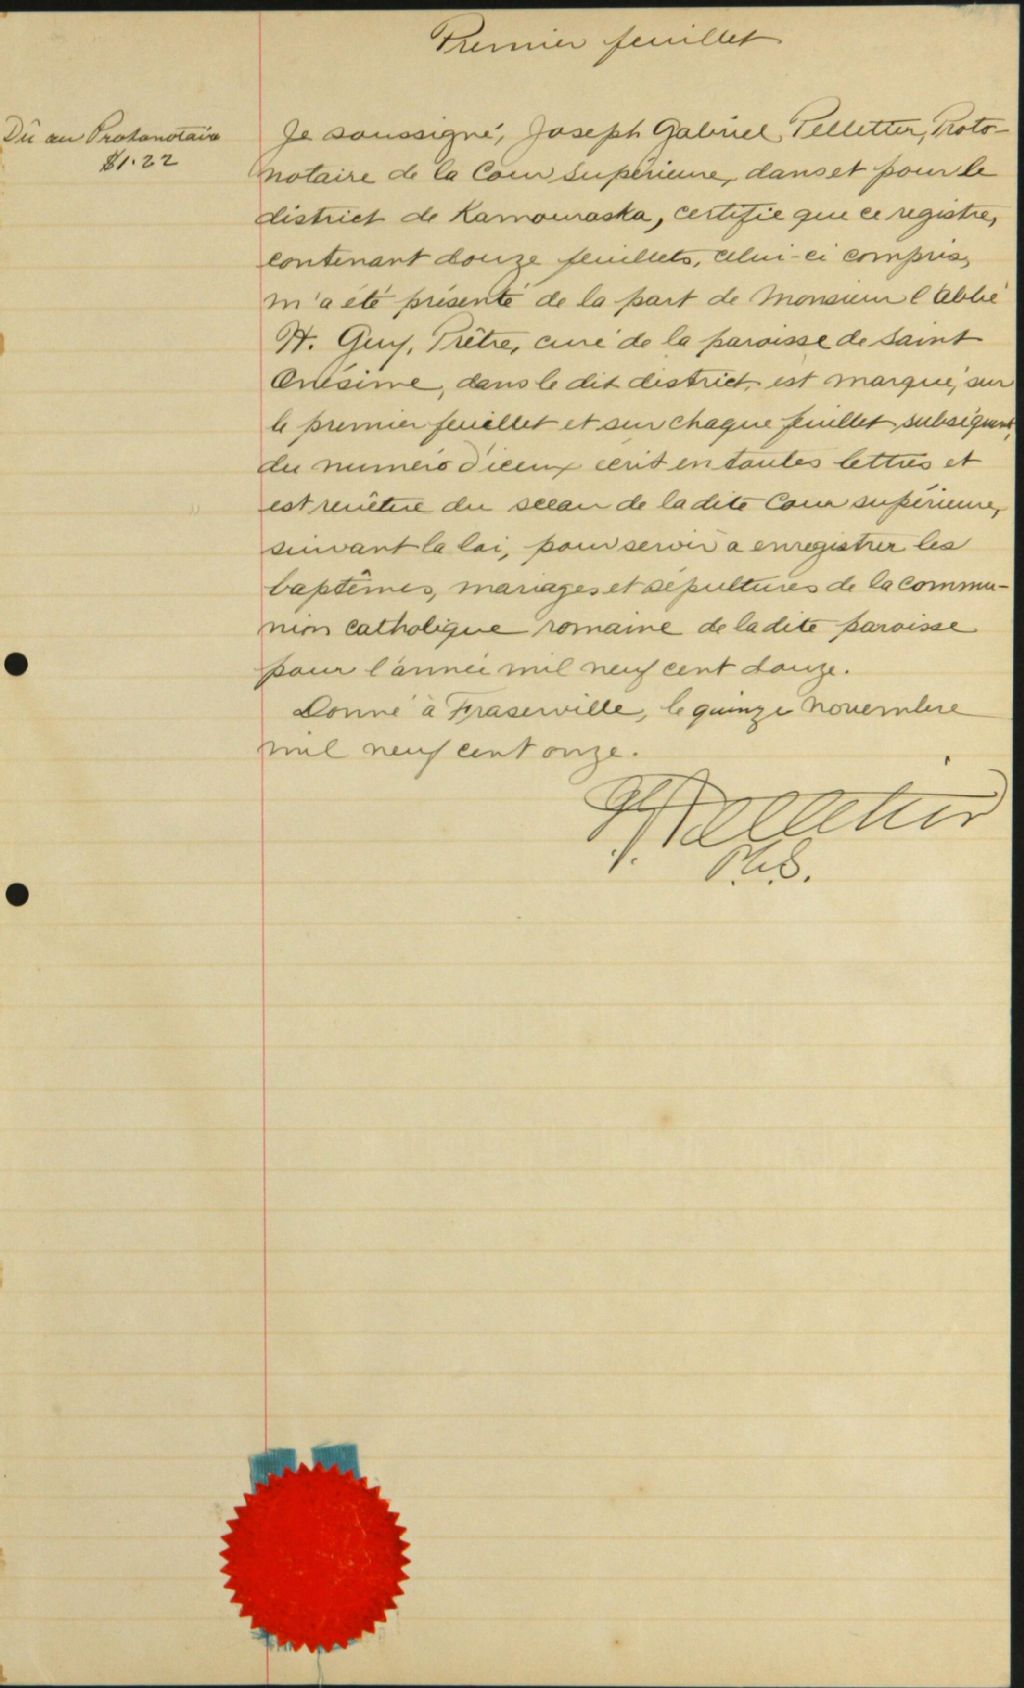 Premier feuillet
Dû au Protonotaire
$1.22
Je soussigné, Joseph Gabriel Pelletier, Proto-
notaire de la Cour Supérieure, dans et pour le
district de Kamouraska, certifie que ce registre,
contenant douze feuillets, celui-ci compris,
m'a été présenté de la part de Monsieur l'Abbé
H. Guy, Prêtre, curé de la paroisse de Saint
Onésime, dans le dit district, est marqué, sur
le premier feuillet et sur chaque feuillet subséquent,
du numéro d'iceux écrit en toutes lettres et
est revêtue du sceau de la dite Cour supérieure,
suivant la loi, pour servir à enregistrer les
baptêmes, mariages et sépultures de la commu-
nion catholique romaine de la dite paroisse
pour l'année mil neuf cent douze.
Donné à Fraserville, le quinze novembre
mil neuf cent onze.
Pelletier
P.C.S.